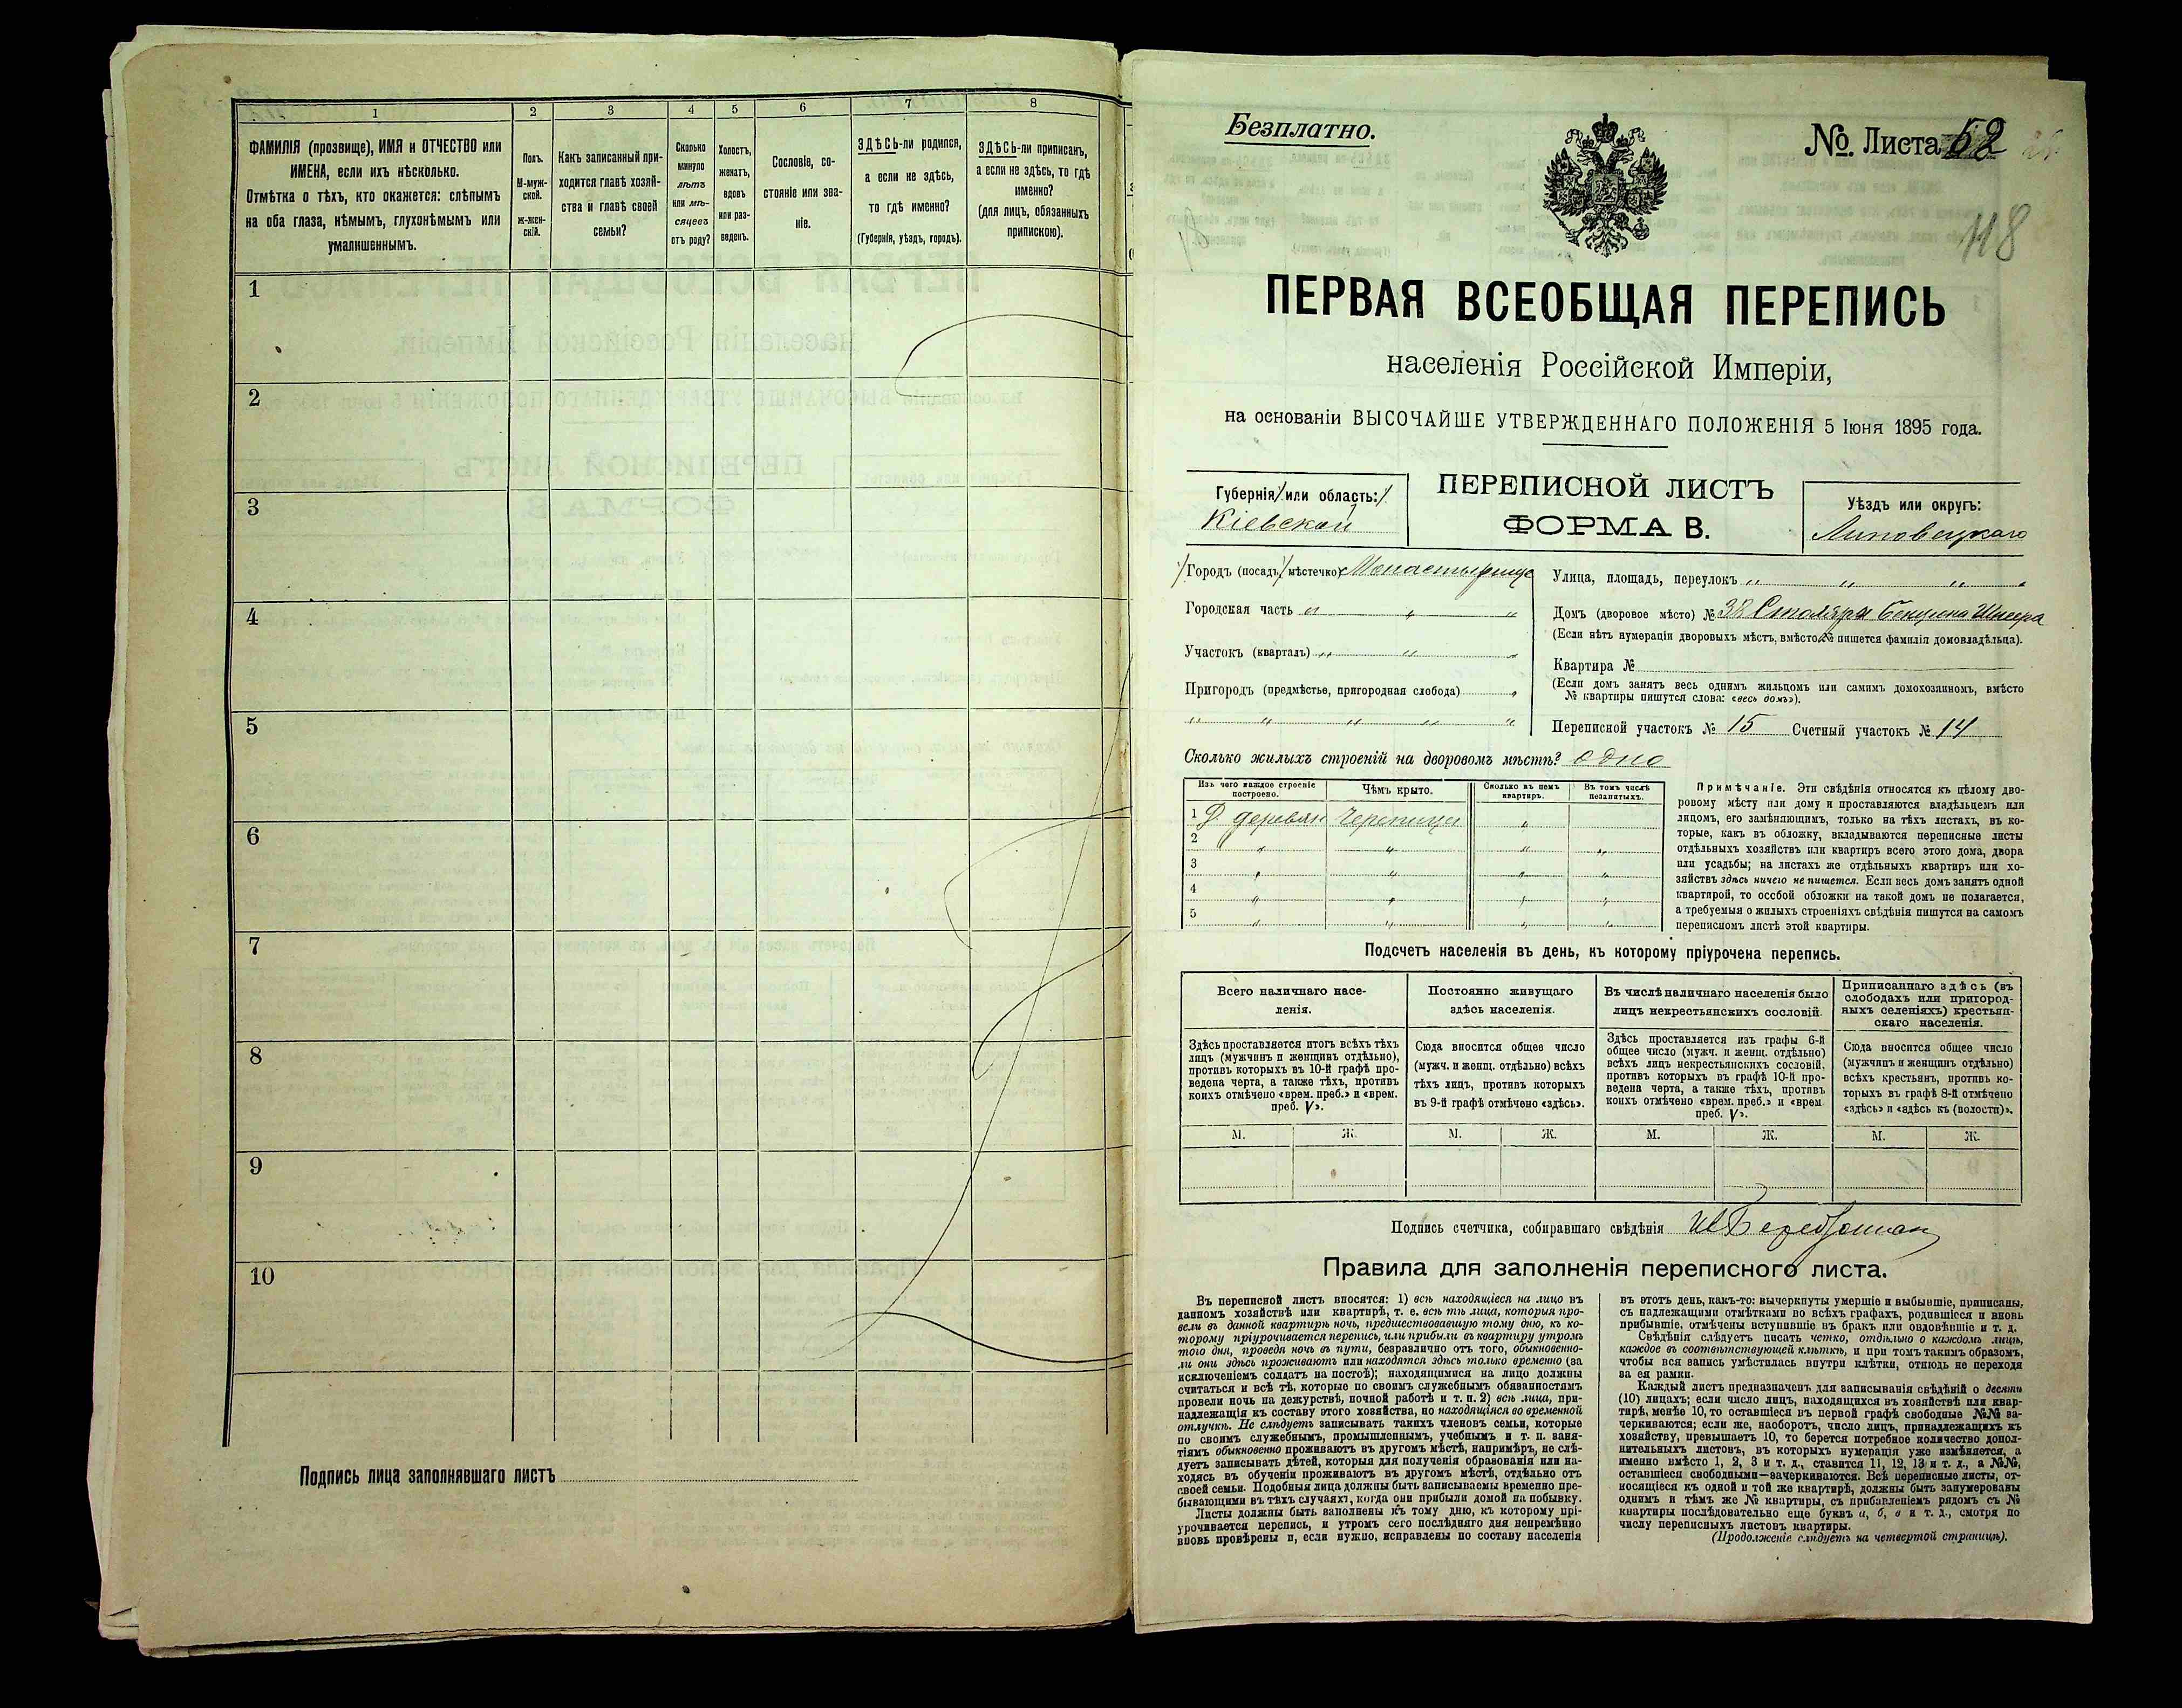 1
2
3
4
5
6
7
8
ФАМИЛІЯ (прозвище), ИМЯ и ОТЧЕСТВО или
ИМЕНА, если ихъ нѣсколько.
Отмѣтка о тѣхъ, кто окажется: слѣпымъ
на оба глаза, нѣмымъ, глухонѣмымъ или
умалишеннымъ.
Полъ.
М-муж-
ской.
ж-жен-
скій.
Какъ записанный при-
ходится главѣ хозяй-
ства и главѣ своей
семьи?
Сколько
минуло
лѣтъ
или мѣ-
сяцевъ
отъ роду?
Холостъ,
женатъ,
вдовъ
или раз-
веденъ.
Сословіе, со-
стояніе или зва-
ніе.
ЗДѢСЬ-ли родился,
а если не здѣсь,
то гдѣ именно?
(Губернія, уѣздъ, городъ).
ЗДѢСЬ-ли приписанъ,
а если не здѣсь, то гдѣ
именно?
(для лицъ, обязанныхъ
припискою).
1
2
3
4
5
6
7
8
9
10
Подпись лица заполнявшаго листъ
Безплатно.
№. Листа 52
118
ПЕРВАЯ ВСЕОБЩАЯ ПЕРЕПИСЬ
населенія Россійской Имперіи,
на основаніи ВЫСОЧАЙШЕ УТВЕРЖДЕННАГО ПОЛОЖЕНІЯ 5 Іюня 1895 года.
Губернія или область:
Кіевской
ПЕРЕПИСНОЙ ЛИСТЪ
ФОРМА В.
Уѣздъ или округъ:
Липовецкаго
Городъ (посадъ, мѣстечко) Монастырище
Городская часть " " "
Участокъ (кварталъ) " " "
Пригородъ (предмѣстье, пригородная слобода) "
" " " " "
Улица, площадь, переулокъ " " " "
Домъ (дворовое мѣсто) № 38 Столяра Бенциона Шнеера
(Если нѣтъ нумераціи дворовыхъ мѣстъ, вмѣсто № пишется фамилія домовладѣльца).
Квартира №
(Если домъ занятъ весь однимъ жильцомъ или самимъ домохозяиномъ, вмѣсто
№ квартиры пишутся слова: «весь домъ»).
Переписной участокъ № 15 Счетный участокъ № 14
Сколько жилыхъ строеній на дворовомъ мѣстѣ? одно
Изъ чего каждое строеніе
построено.
Чѣмъ крыто.
Сколько въ немъ
квартиръ.
Въ томъ числѣ
незанятыхъ.
1 деревян Черепицы "
2 " " " "
3 " " " "
4 " " " "
5 " " " "
Примѣчаніе. Эти свѣдѣнія относятся къ цѣлому дво-
ровому мѣсту или дому и проставляются владѣльцемъ или
лицомъ, его замѣняющимъ, только на тѣхъ листахъ, въ ко-
торые, какъ въ обложку, вкладываются переписные листы
отдѣльныхъ хозяйствъ или квартиръ всего этого дома, двора
или усадьбы; на листахъ же отдѣльныхъ квартиръ или хо-
зяйствъ здѣсь ничего не пишется. Если весь домъ занятъ одной
квартирой, то особой обложки на такой домъ не полагается,
а требуемыя о жилыхъ строеніяхъ свѣдѣнія пишутся на самомъ
переписномъ листѣ этой квартиры.
Подсчетъ населенія въ день, къ которому пріурочена перепись.
Всего наличнаго насе-
ленія.
Постоянно живущаго
здѣсь населенія.
Въ числѣ наличнаго населенія было
лицъ некрестьянскихъ сословій.
Приписаннаго здѣсь (въ
слободахъ или пригород-
ныхъ селеніяхъ) крестьян-
скаго населенія.
Здѣсь проставляется итогъ всѣхъ тѣхъ
лицъ (мужчинъ и женщинъ отдѣльно),
противъ которыхъ въ 10-й графѣ про-
ведена черта, а также тѣхъ, противъ
коихъ отмѣчено «врем. преб.» и «врем.
преб. V».
Сюда вносится общее число
(мужч. и женщ. отдѣльно) всѣхъ
тѣхъ лицъ, противъ которыхъ
въ 9-й графѣ отмѣчено «здѣсь».
Здѣсь проставляется изъ графы 6-й
общее число (мужч. и женщ. отдѣльно)
всѣхъ лицъ некрестьянскихъ сословій,
противъ которыхъ въ графѣ 10-й про-
ведена черта, а также тѣхъ, противъ
коихъ отмѣчено «врем. преб.» и «врем.
преб. V».
Сюда вносится общее число
(мужчинъ и женщинъ отдѣльно)
всѣхъ крестьянъ, противъ ко-
торыхъ въ графѣ 8-й отмѣчено
«здѣсь» и «здѣсь къ (волости)».
М. Ж. М. Ж. М. Ж. М. Ж.
Подпись счетчика, собиравшаго свѣдѣнія
Правила для заполненія переписного листа.
Въ переписной листъ вносятся: 1) всѣ находящіеся на лицо въ
данномъ хозяйствѣ или квартирѣ, т. е. всѣ тѣ лица, которыя про-
вели въ данной квартирѣ ночь, предшествовавшую тому дню, къ ко-
торому пріурочивается перепись, или прибыли въ квартиру утромъ
того дня, проведя ночь въ пути, безразлично отъ того, обыкновенно-
ли они здѣсь проживаютъ или находятся здѣсь только временно (за
исключеніемъ солдатъ на постоѣ); находящимися на лицо должны
считаться и всѣ тѣ, которые по своимъ служебнымъ обязанностямъ
провели ночь на дежурствѣ, ночной работѣ и т. п. 2) всѣ лица, при-
надлежащія къ составу этого хозяйства, но находящіяся во временной
отлучкѣ. Не слѣдуетъ записывать такихъ членовъ семьи, которые
по своимъ служебнымъ, промышленнымъ, учебнымъ и т. п. заня-
тіямъ обыкновенно проживаютъ въ другомъ мѣстѣ, напримѣръ, не слѣ-
дуетъ записывать дѣтей, которыя для полученія образованія или на-
ходясь въ обученіи проживаютъ въ другомъ мѣстѣ, отдѣльно отъ
своей семьи. Подобныя лица должны быть записываемы временно пре-
бывающими въ тѣхъ случаяхъ, когда они прибыли домой на побывку.
Листы должны быть заполнены къ тому дню, къ которому прі-
урочивается перепись, и утромъ сего послѣдняго дня непремѣнно
вновь провѣрены и, если нужно, исправлены по составу населенія
въ этотъ день, какъ-то: вычеркнуты умершіе и выбывшіе, приписаны,
съ надлежащими отмѣтками во всѣхъ графахъ, родившіеся и вновь
прибывшіе, отмѣчены вступившіе въ бракъ или овдовѣвшіе и т. д.
Свѣдѣнія слѣдуетъ писать четко, отдѣльно о каждомъ лицѣ,
каждое въ соотвѣтствующей клѣткѣ, и при томъ такимъ образомъ,
чтобы вся запись умѣстилась внутри клѣтки, отнюдь не переходя
за ея рамки.
Каждый листъ предназначенъ для записыванія свѣдѣній о десяти
(10) лицахъ; если число лицъ, находящихся въ хозяйствѣ или квар-
тирѣ, менѣе 10, то оставшіеся въ первой графѣ свободные №№ за-
черкиваются; если же, наоборотъ, число лицъ, принадлежащихъ къ
хозяйству, превышаетъ 10, то берется потребное количество допол-
нительныхъ листовъ, въ которыхъ нумерація уже измѣняется, а
именно вмѣсто 1, 2, 3 и т. д., ставится 11, 12, 13 и т. д., а №№,
оставшіеся свободными—зачеркиваются. Всѣ переписные листы, от-
носящіеся къ одной и той же квартирѣ, должны быть занумерованы
однимъ и тѣмъ же № квартиры, съ прибавленіемъ рядомъ съ №
квартиры послѣдовательно еще буквъ а, б, в и т. д., смотря по
числу переписныхъ листовъ квартиры.
(Продолженіе слѣдуетъ на четвертой страницѣ).